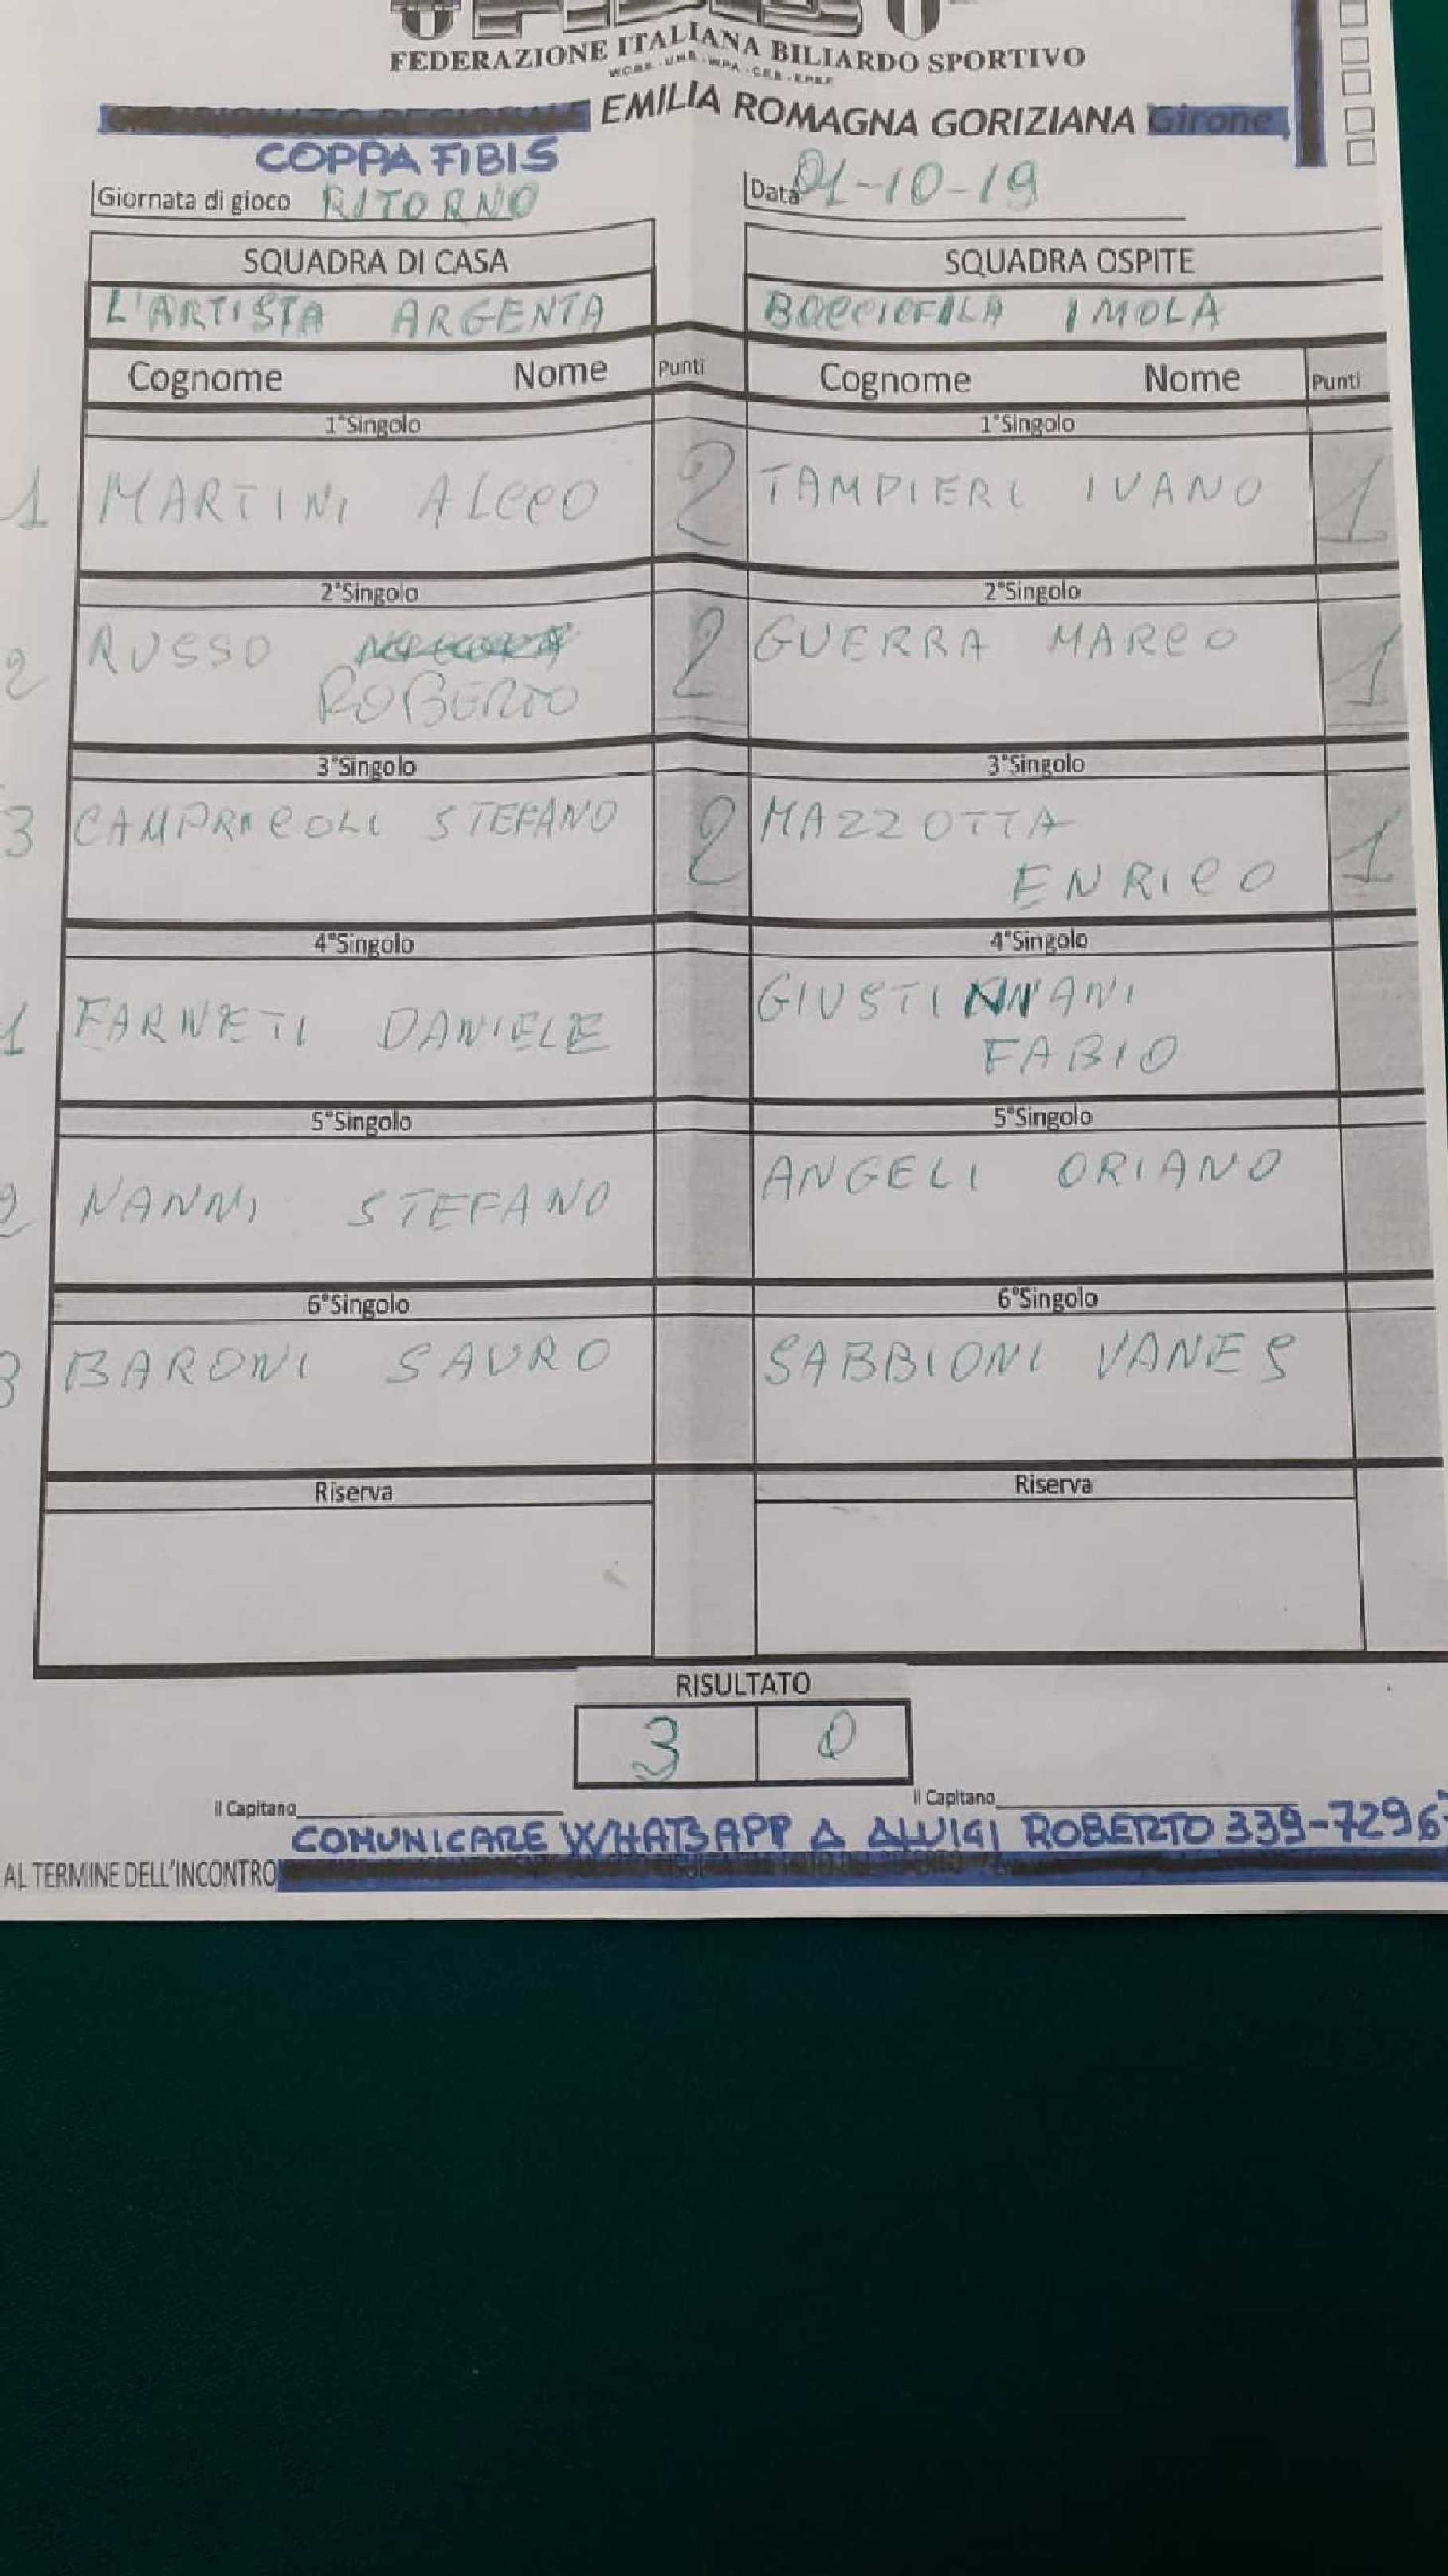 FEDERAZIONE ITALIANA BILIARDO SPORTIVO
EMILIA ROMAGNA GORIZIANA Girone
COPPA FIBIS
Giornata di gioco RITORNO Data 01-10-19
SQUADRA DI CASA SQUADRA OSPITE
L'ARTISTA ARGENTA BOCCIOFILA IMOLA
Cognome Nome Punti Cognome Nome Punti
1°Singolo 1°Singolo
1 MARTINI ALCEO 2 TAMPIERI IVANO 1
2°Singolo 2°Singolo
2 RUSSO 2 GUERRA MARCO 1
ROBERTO
3°Singolo 3°Singolo
3 CAMPRACOLI STEFANO 2 MAZZOTTA 1
ENRICO
4°Singolo 4°Singolo
1 FARNETI DANIELE GIUSTINIANI
FABIO
5°Singolo 5°Singolo
2 NANNI STEFANO ANGELI ORIANO
6°Singolo 6°Singolo
3 BARONI SAURO SABBIONI VANES
Riserva Riserva
RISULTATO
3 0
il Capitano il Capitano
COMUNICARE WHATSAPP A ALUIGI ROBERTO 339-7296
AL TERMINE DELL'INCONTRO